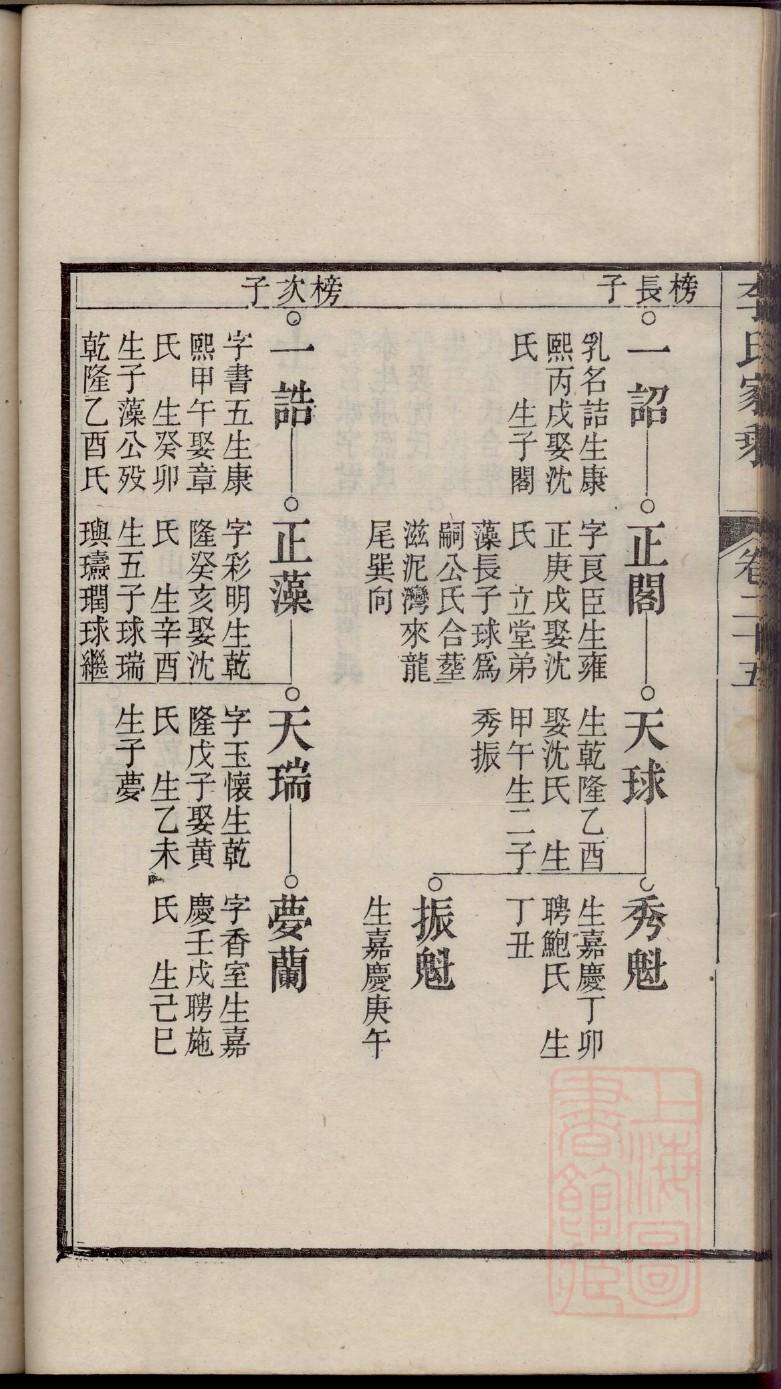 李氏家乘
卷二十五
榜長子
一詔
乳名詰生康
熙丙戌娶沈
氏 生子閣
正閣
字良臣生雍
正庚戌娶沈
氏 立堂弟
藻長子球爲
嗣公氏合塟
滋泥灣來龍
尾巽向
天球
生乾隆乙酉
娶沈氏 生
甲午生二子
秀振
秀魁
生嘉慶丁卯
聘鮑氏 生
丁丑
振魁
生嘉慶庚午
榜次子
一誥
字書五生康
熙甲午娶章
氏 生癸卯
生子藻公歿
乾隆乙酉氏
正藻
字彩明生乾
隆癸亥娶沈
氏 生辛酉
生五子球瑞
璵璹瓓球繼
天瑞
字玉懷生乾
隆戊子娶黃
氏 生乙未
生子夢
夢蘭
字香室生嘉
慶壬戌聘施
氏 生己巳
上海圖
書館藏